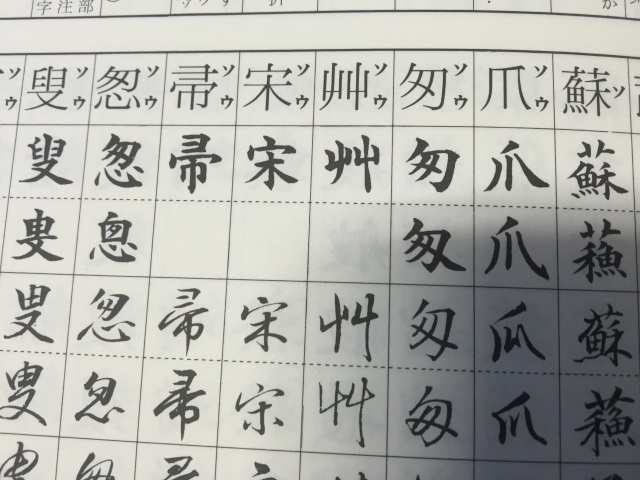 字注部
蘇ソ
蘇
蘓
蘇
蘓
爪ソウ
爪
爪
爪
爪
匆ソウ
匆
匆
匆
匆
艸ソウ
艸
艸
艸
宋ソウ
宋
宋
宋
帚ソウ
帚
帚
帚
怱ソウ
怱
怱
怱
叟ソウ
叟
叟
叟
叟